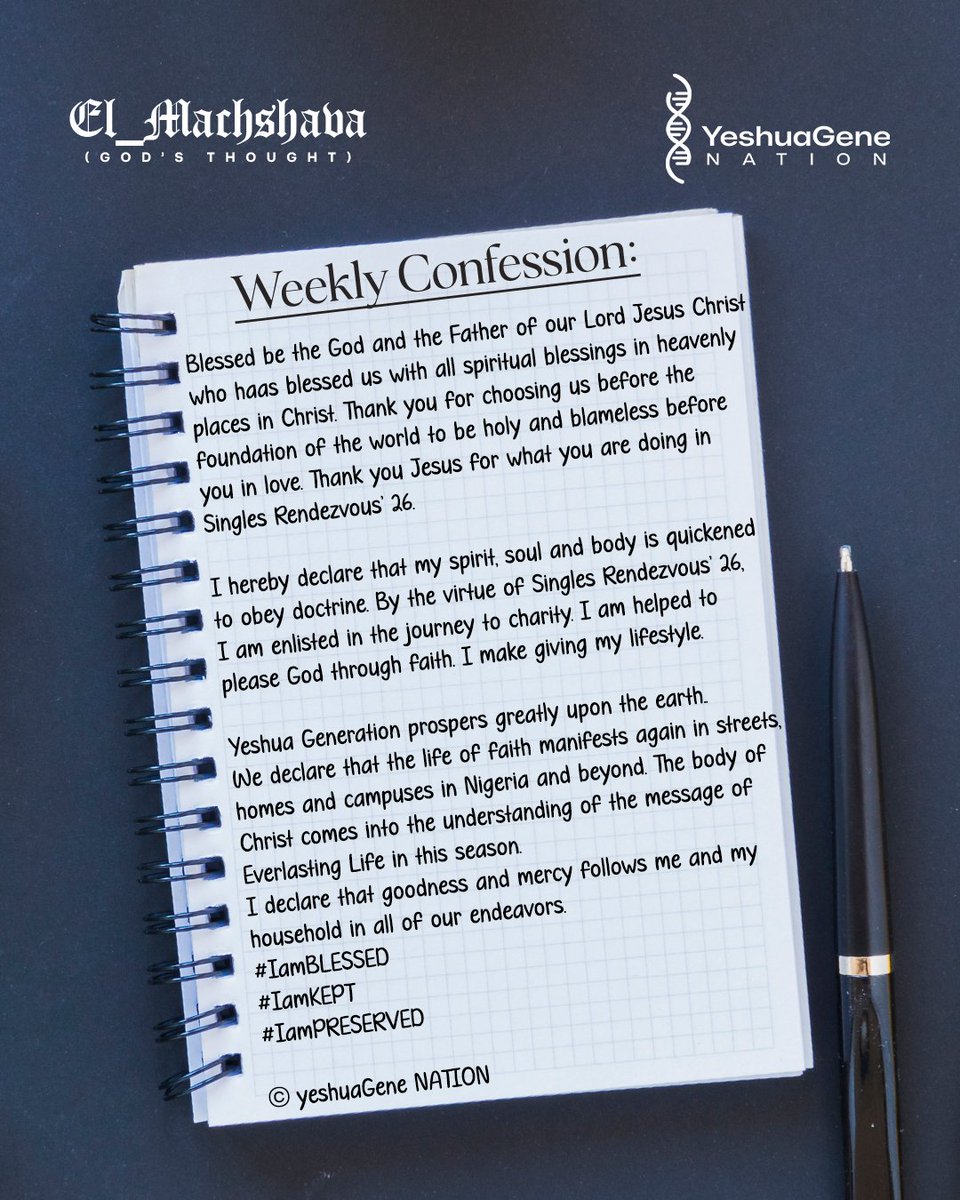 El_Machshava
(GOD'S THOUGHT)
YeshuaGene
NATION
Weekly Confession:
Blessed be the God and the Father of our Lord Jesus Christ
who haas blessed us with all spiritual blessings in heavenly
places in Christ. Thank you for choosing us before the
foundation of the world to be holy and blameless before
you in love. Thank you Jesus for what you are doing in
Singles Rendezvous' 26.
I hereby declare that my spirit, soul and body is quickened
to obey doctrine. By the virtue of Singles Rendezvous' 26,
I am enlisted in the journey to charity. I am helped to
please God through faith. I make giving my lifestyle.
Yeshua Generation prospers greatly upon the earth..
We declare that the life of faith manifests again in streets,
homes and campuses in Nigeria and beyond. The body of
Christ comes into the understanding of the message of
Everlasting Life in this season.
I declare that goodness and mercy follows me and my
household in all of our endeavors.
#IamBLESSED
#IamKEPT
#IamPRESERVED
© yeshuaGene NATION